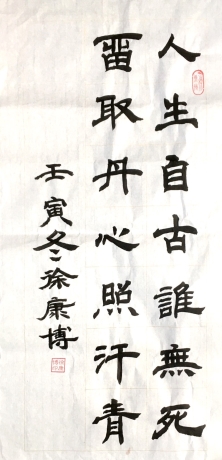 人生自古誰無死
畱取丹心照汗青
壬寅冬徐康博